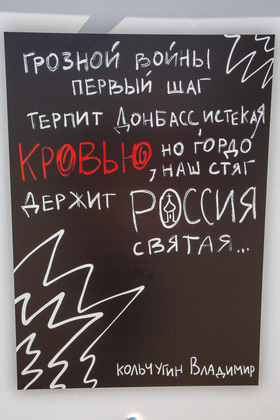 ГРОЗНОЙ ВОЙНЫ
ПЕРВЫЙ ШАГ
ТЕРПИТ ДОНБАСС ИСТЕКАЯ
КРОВЬЮ НО ГОРДО
, НАШ СТЯГ
ДЕРЖИТ РОССИЯ
СВЯТАЯ...
КОЛЬЧУГИН ВЛАДИМИР